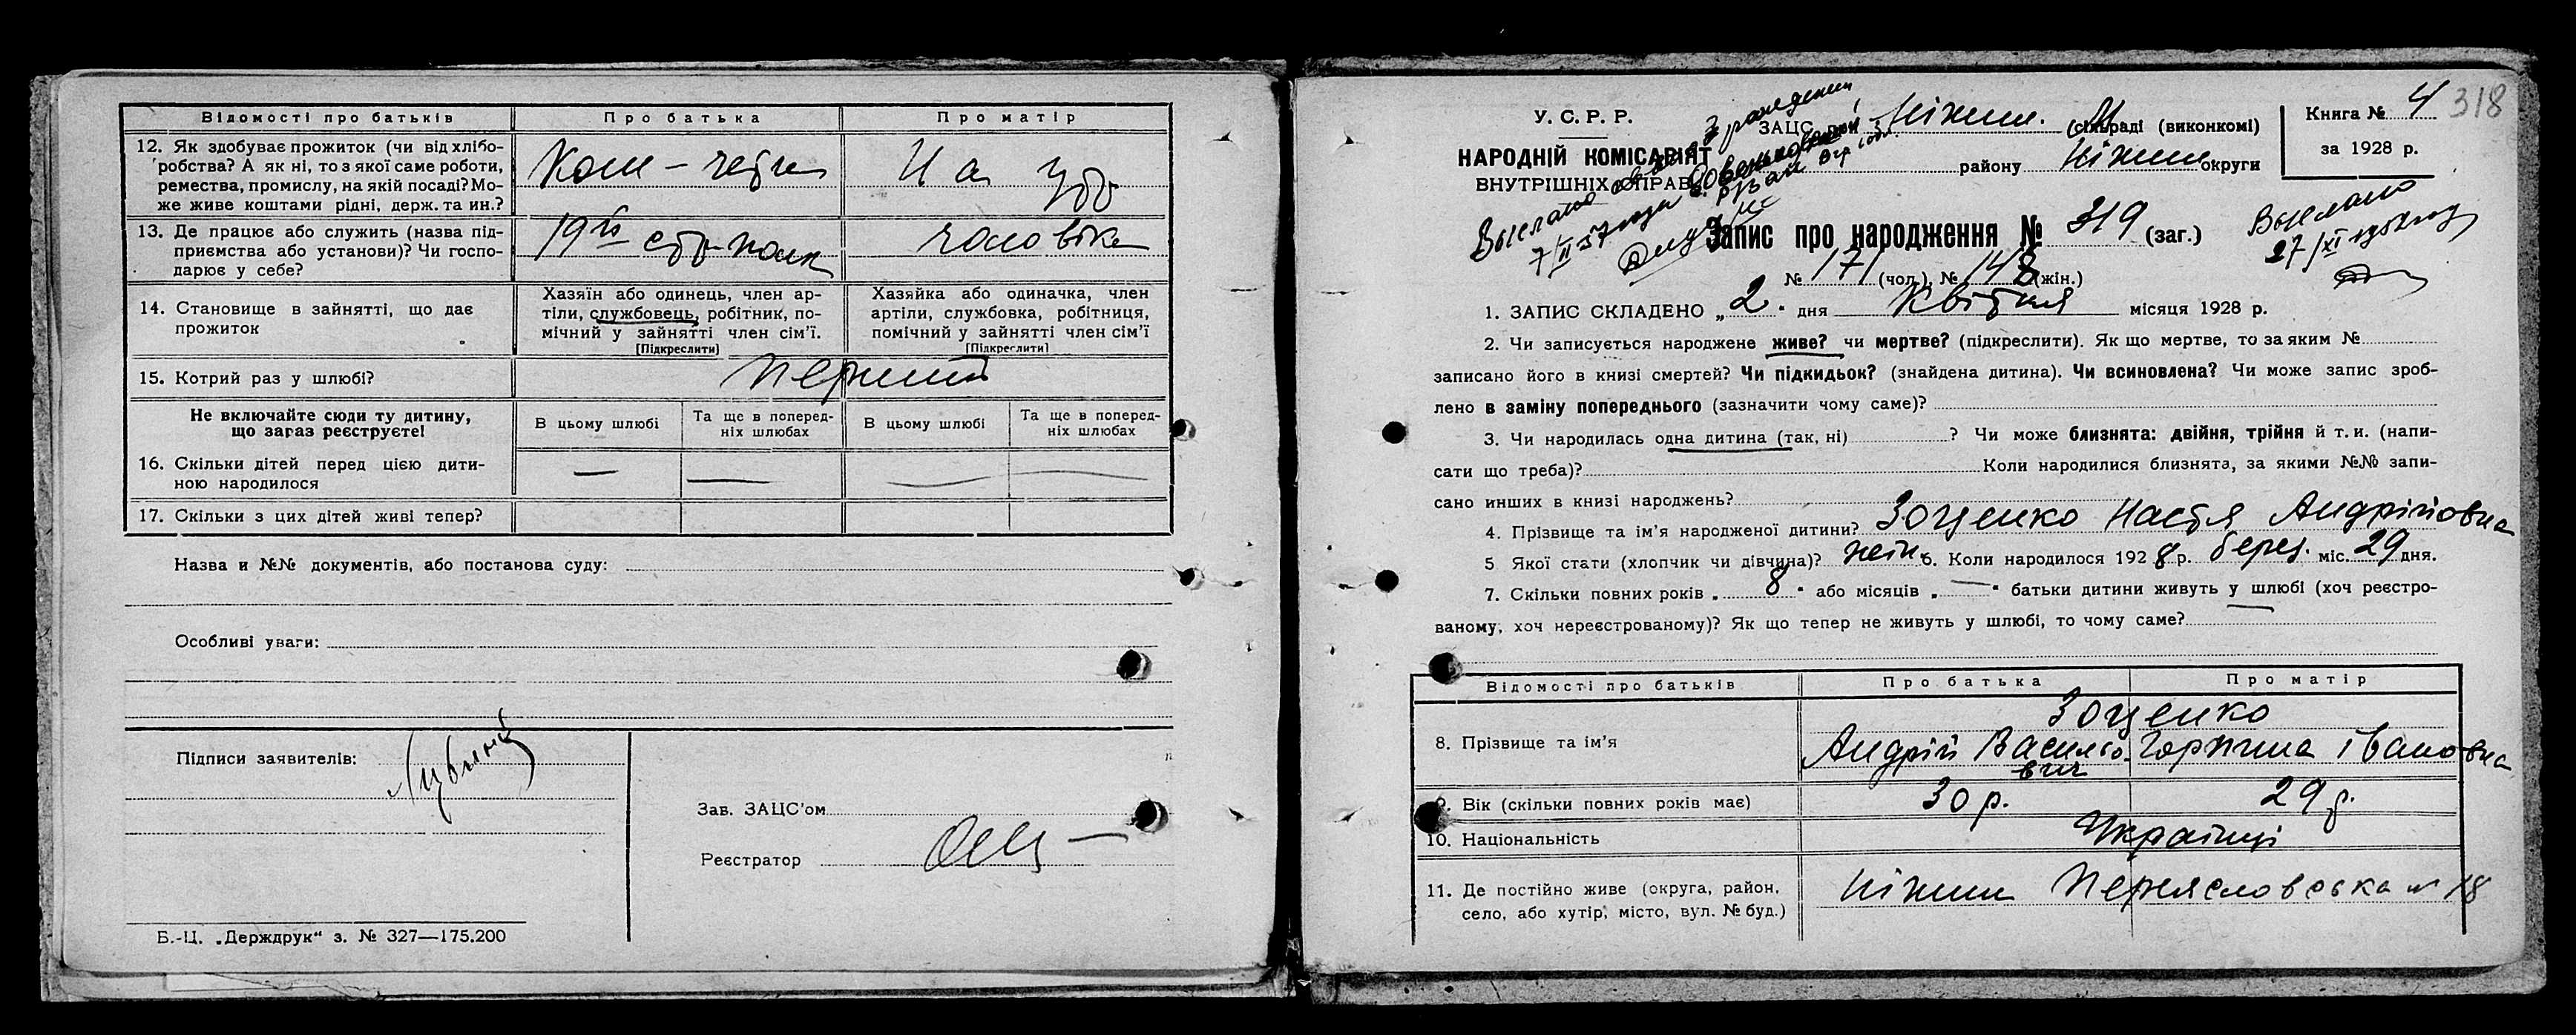 Відомості про батьків Про батька Про матір
12. Як здобуває прожиток (чи від хлібо-
робства? А як ні, то з якої саме роботи,
ремества, промислу, на якій посаді? Мо-
же живе коштами рідні, держ. та ин.?
На
13. Де працює або служить (назва під-
приємства або установи)? Чи госпо-
дарює у себе?
19го полк
чоловіка
14. Становище в зайнятті, що дає
прожиток
Хазяїн або одинець, член ар-
тіли, службовець, робітник, по-
мічний у зайнятті член сім'ї.
[Підкреслити]
Хазяйка або одиначка, член
артіли, службовка, робітниця,
помічний у зайнятті член сім'ї
[Підкреслити]
15. Котрий раз у шлюбі? перший
Не включайте сюди ту дитину,
що зараз реєструєте!
В цьому шлюбі
Та ще в поперед-
ніх шлюбах
В цьому шлюбі
Та ще в поперед-
ніх шлюбах
16. Скільки дітей перед цією дити-
ною народилося — — — —
17. Скільки з цих дітей живі тепер?
Назва и №№ документів, або постанова суду:
Особливі уваги:
Підписи заявителів:
Зав. ЗАЦС'ом
Реєстратор
Б.-Ц. „Держдрук“ з. № 327—175.200
318
У. С. Р. Р.
НАРОДНІЙ КОМІСАРІЯТ
ВНУТРІШНІХ СПРАВ
ЗАЦС при Ніжин. (сільраді (виконкомі)
району Ніжин округи
Книга № 4
за 1928 р.
Выслано
7/II 57 года
Выслано
27/XI
Запис про народження № 319 (заг.)
№ 171 (чол.), № 148 (жін.)
1. ЗАПИС СКЛАДЕНО „ 2 “ дня Квітня місяця 1928 р.
2. Чи записується народжене живе? чи мертве? (підкреслити). Як що мертве, то за яким №
записано його в книзі смертей? Чи підкидьок? (знайдена дитина). Чи всиновлена? Чи може запис зроб-
лено в заміну попереднього (зазначити чому саме)?
3. Чи народилась одна дитина (так, ні) ? Чи може близнята: двійня, трійня й т. и. (напи-
сати що треба)? Коли народилися близнята, за якими №№ запи-
сано инших в книзі народжень?
4. Прізвище та ім'я народженої дитини? Зоценко Настя Андрійовна
5 Якої стати (хлопчик чи дівчина)? жін. 6. Коли народилося 1928 р. берез. міс. 29 дня.
7. Скільки повних років „ 8 “ або місяців „ — “ батьки дитини живуть у шлюбі (хоч реєстро-
ваному, хоч нереєстрованому)? Як що тепер не живуть у шлюбі, то чому саме?
Відомості про батьків Про батька Про матір
Зоценко
8. Прізвище та ім'я Андрій Василье- Горпина Івановна
вич
9. Вік (скільки повних років має) 30 р. 29 р.
10. Національність Українці
11. Де постійно живе (округа, район,
село, або хутір, місто, вул. № буд.)
Ніжин Переясловська № 18